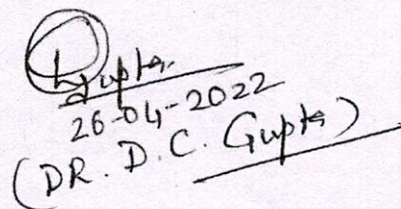 Gupta
26-04-2022
(DR. D. C. Gupta)